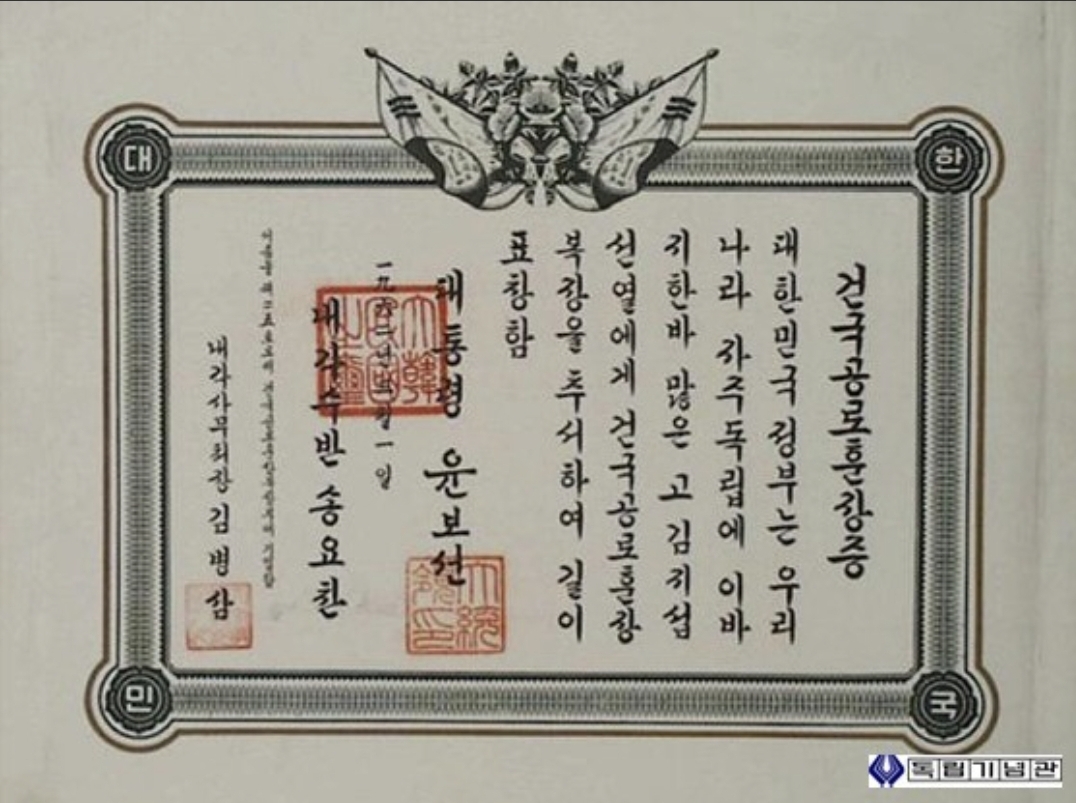 대 한
민 국
건국공로훈장증
대한민국정부는 우리
나라 자주독립에 이바
지한바 많은 고 김지섭
선열에게 건국공로훈장
복장을 추서하여 길이
표창함
대통령 윤보선
大統領印
一九六二년 三월 一일
大韓民國之璽
내각수반 송요찬
이증을 기입함
내각사무처장 김병삼
독립기념관